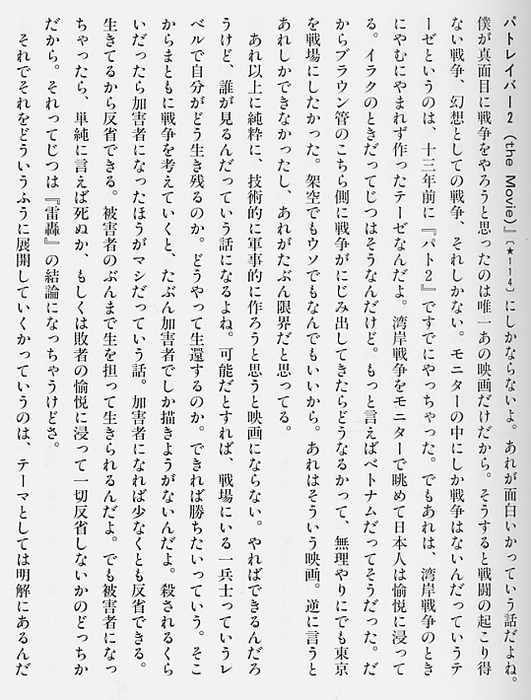 パトレイバー2（the Movie)』〔★一一4〕にしかならないよ。あれが面白いかっていう話だよね。
僕が真面目に戦争をやろうと思ったのは唯一あの映画だけだから。そうすると戦闘の起こり得
ない戦争、幻想としての戦争、それしかない。モニターの中にしか戦争はないんだっていうテ
ーゼというのは、十三年前に『パト2』ですでにやっちゃった。でもあれは、湾岸戦争のとき
にやむにやまれず作ったテーゼなんだよ。湾岸戦争をモニターで眺めて日本人は愉悦に浸って
る。イラクのときだってじつはそうなんだけど。もっと言えばベトナムだってそうだった。だ
からブラウン管のこちら側に戦争がにじみ出してきたらどうなるかって、無理やりにでも東京
を戦場にしたかった。架空でもウソでもなんでもいいから。あれはそういう映画。逆に言うと
あれしかできなかったし、あれがたぶん限界だと思ってる。
あれ以上に純粋に、技術的に軍事的に作ろうと思うと映画にならない。やればできるんだろ
うけど、誰が見るんだっていう話になるよね。可能だとすれば、戦場にいる一兵士っていうレ
ベルで自分がどう生き残るのか。どうやって生還するのか。できれば勝ちたいっていう。そこ
からまともに戦争を考えていくと、たぶん加害者でしか描きようがないんだよ。殺されるくら
いだったら加害者になったほうがマシだっていう話。加害者になれば少なくとも反省できる。
生きてるから反省できる。被害者のぶんまで生を担って生きられるんだよ。でも被害者になっ
ちゃったら、単純に言えば死ぬか、もしくは敗者の愉悦に浸って一切反省しないかのどっちか
だから。それってじつは『雷轟』の結論になっちゃうけどさ。
それでそれをどういうふうに展開していくかっていうのは、テーマとしては明解にあるんだ